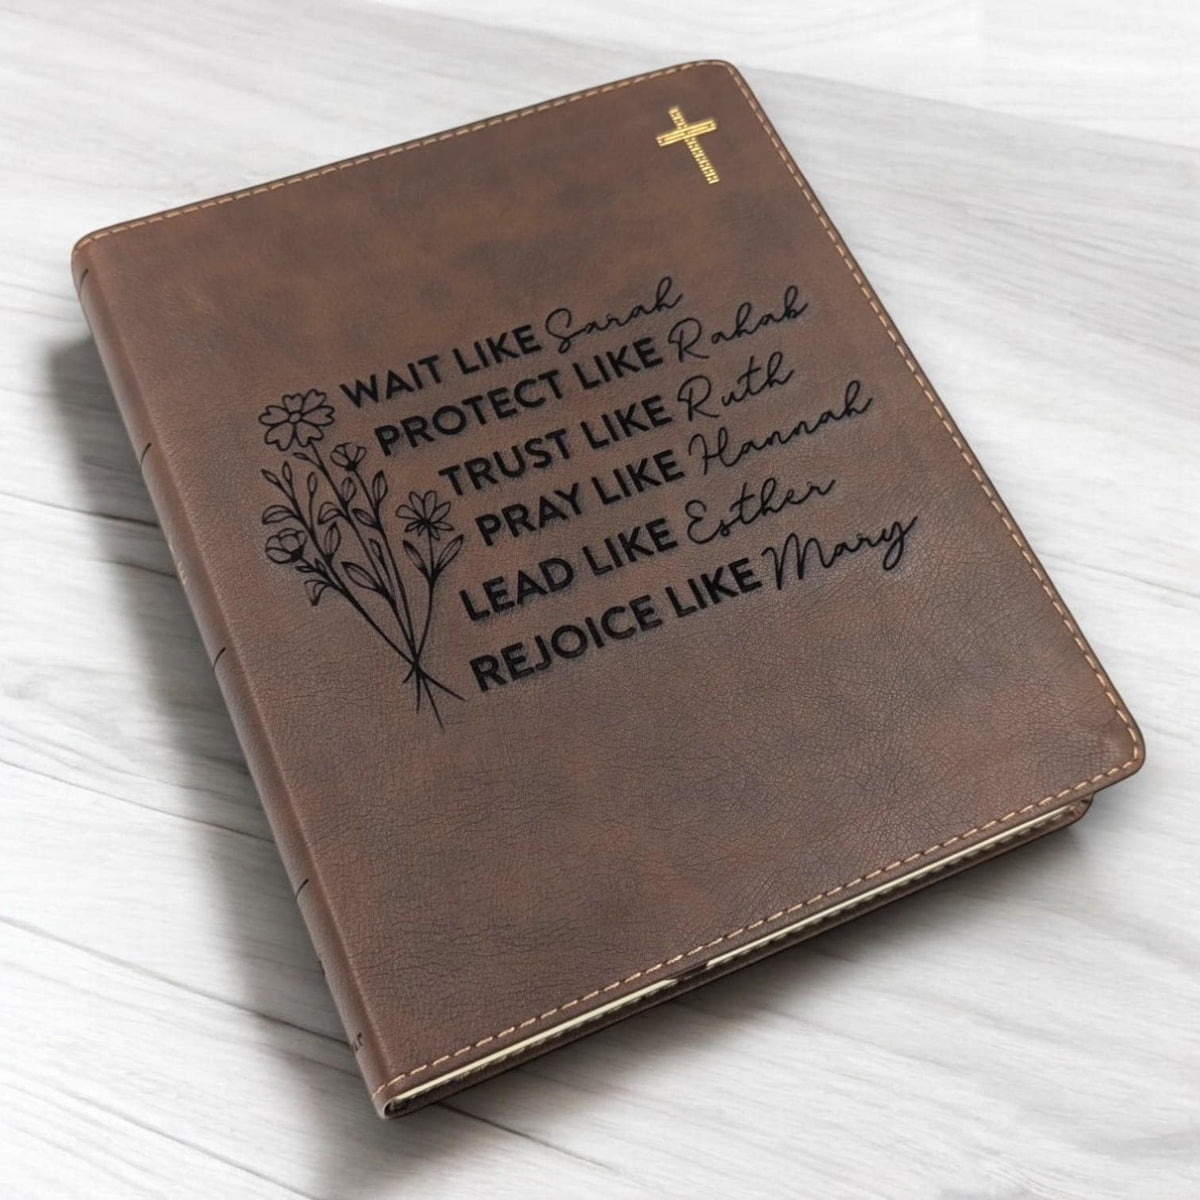 WAIT LIKE Sarah
PROTECT LIKE Rahab
TRUST LIKE Ruth
PRAY LIKE Hannah
LEAD LIKE Esther
REJOICE LIKE Mary